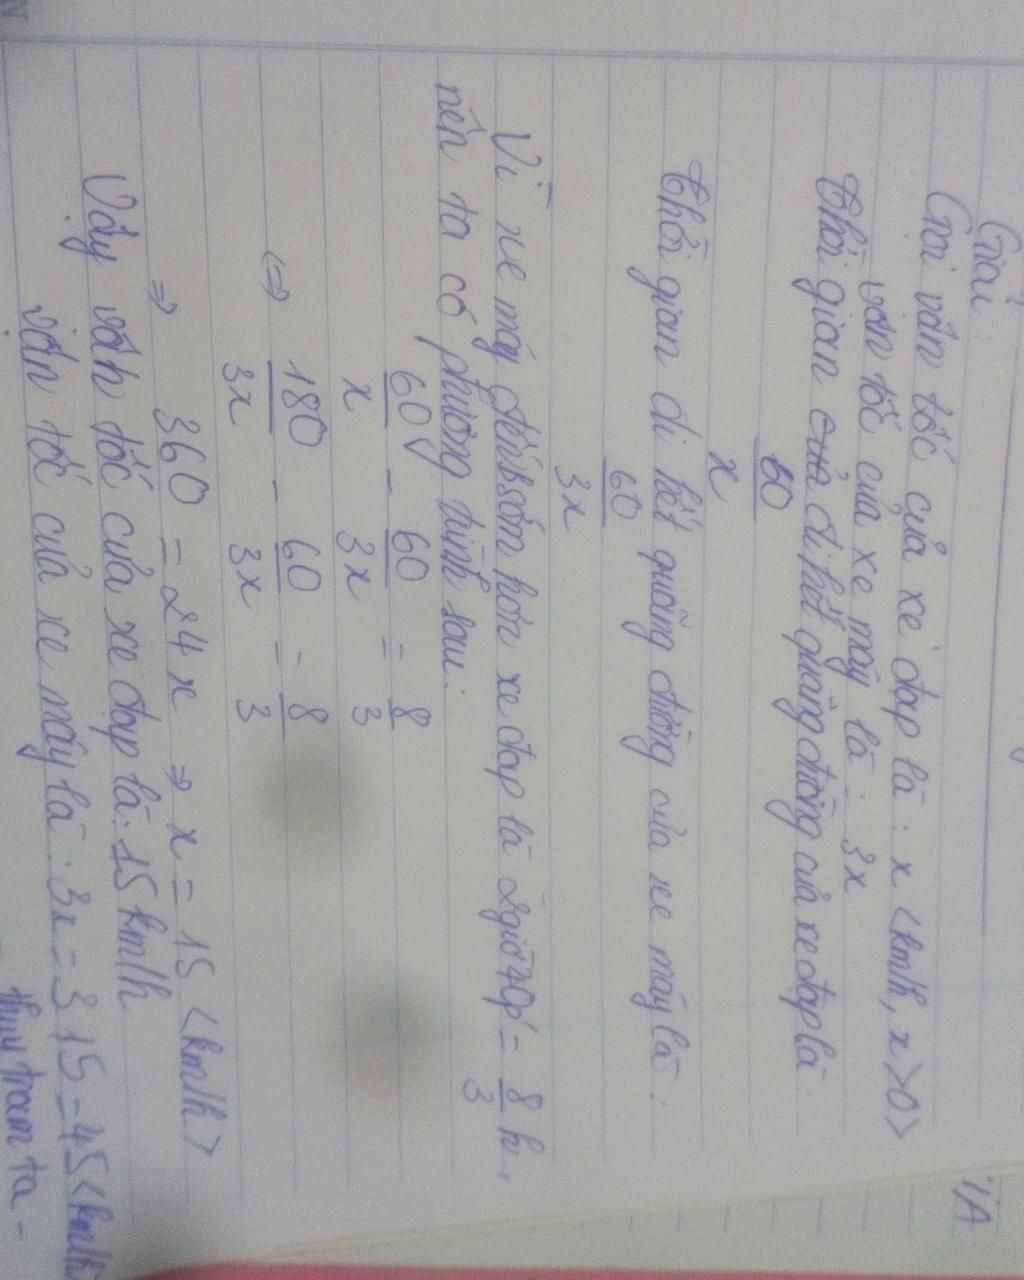 Giải:
Gọi vận tốc của xe đạp là: x <km/h, x>0>
vận tốc của xe máy là: 3x
thời gian của đi hết quãng đường của xe đạp là:
60/x
thời gian đi hết quãng đường của xe máy là:
60/3x
Vì xe máy đến sớm hơn xe đạp là 2giờ 40p' = 8/3 h.
nên ta có phương trình sau:
60/x - 60/3x = 8/3
⇔ 180/3x - 60/3x = 8/3
⇒ 360 = 24x ⇒ x = 15 <km/h>
Vậy vận tốc của xe đạp là: 15 km/h
vận tốc của xe máy là: 3x = 3.15 = 45 <km/h>